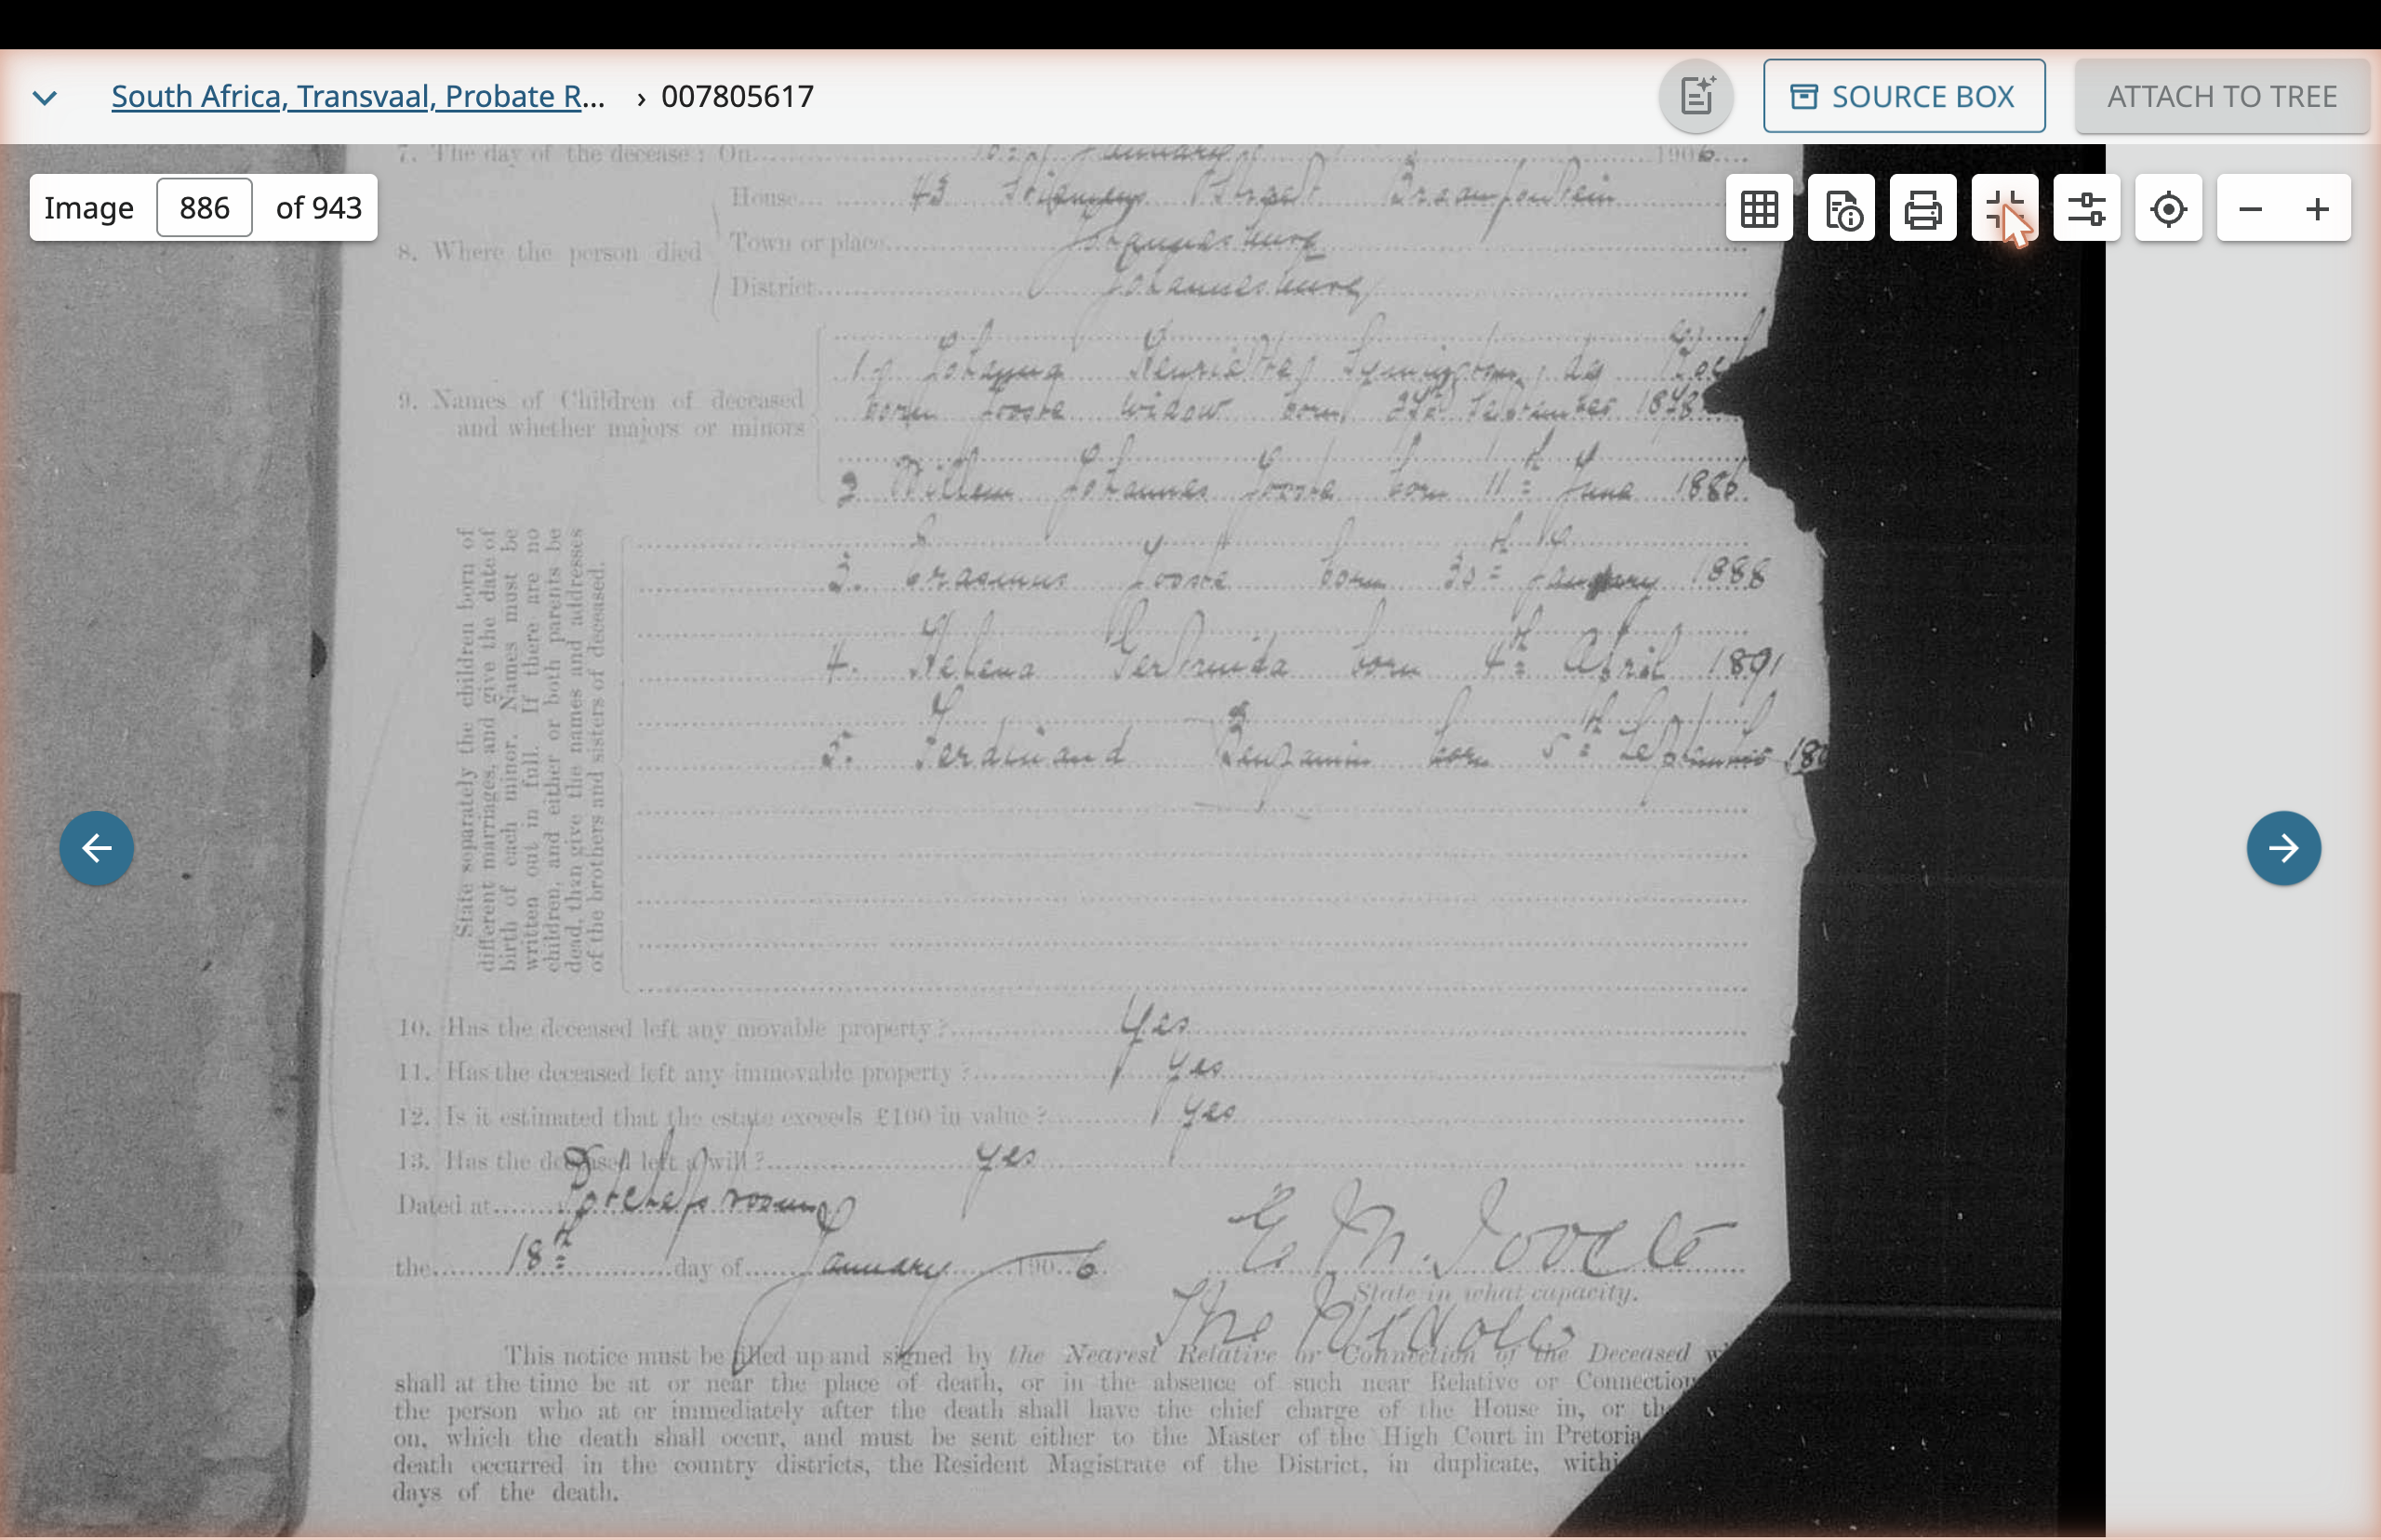 South Africa, Transvaal, Probate R... › 007805617
SOURCE BOX
ATTACH TO TREE
Image 886 of 943
7. The day of the decease: On January 1906
House 43 Street Braamfontein
8. Where the person died
Town or place Johannesburg
District Johannesburg
9. Names of Children of deceased and whether majors or minors
1. Johanna Henrietta Symington, de
born Jooste widow born September
2 Willem Johannes Jooste born 11th June 1886
3. Erasmus Jooste born 30th January 1888
4. Helena Gertruida born 4th April 1891
5. Ferdinand Benjamin born 5th September 18
State separately the children born of
different marriages, and give the date of
birth of each minor. Names must be
written out in full. If there are no
children, and either or both parents be
dead, than give the names and addresses
of the brothers and sisters of deceased.
10. Has the deceased left any movable property? Yes
11. Has the deceased left any immovable property? yes
12. Is it estimated that the estate exceeds £100 in value? yes
13. Has the deceased left a will? yes
Dated at Potchefstroom
the 18th day of January 1906 E M. Jooste
State in what capacity.
The Widow
This notice must be filled up and signed by the Nearest Relative or Connection of the Deceased w
shall at the time be at or near the place of death, or in the absence of such near Relative or Connection
the person who at or immediately after the death shall have the chief charge of the House in, or th
on, which the death shall occur, and must be sent either to the Master of the High Court in Pretoria
death occurred in the country districts, the Resident Magistrate of the District, in duplicate, withi
days of the death.